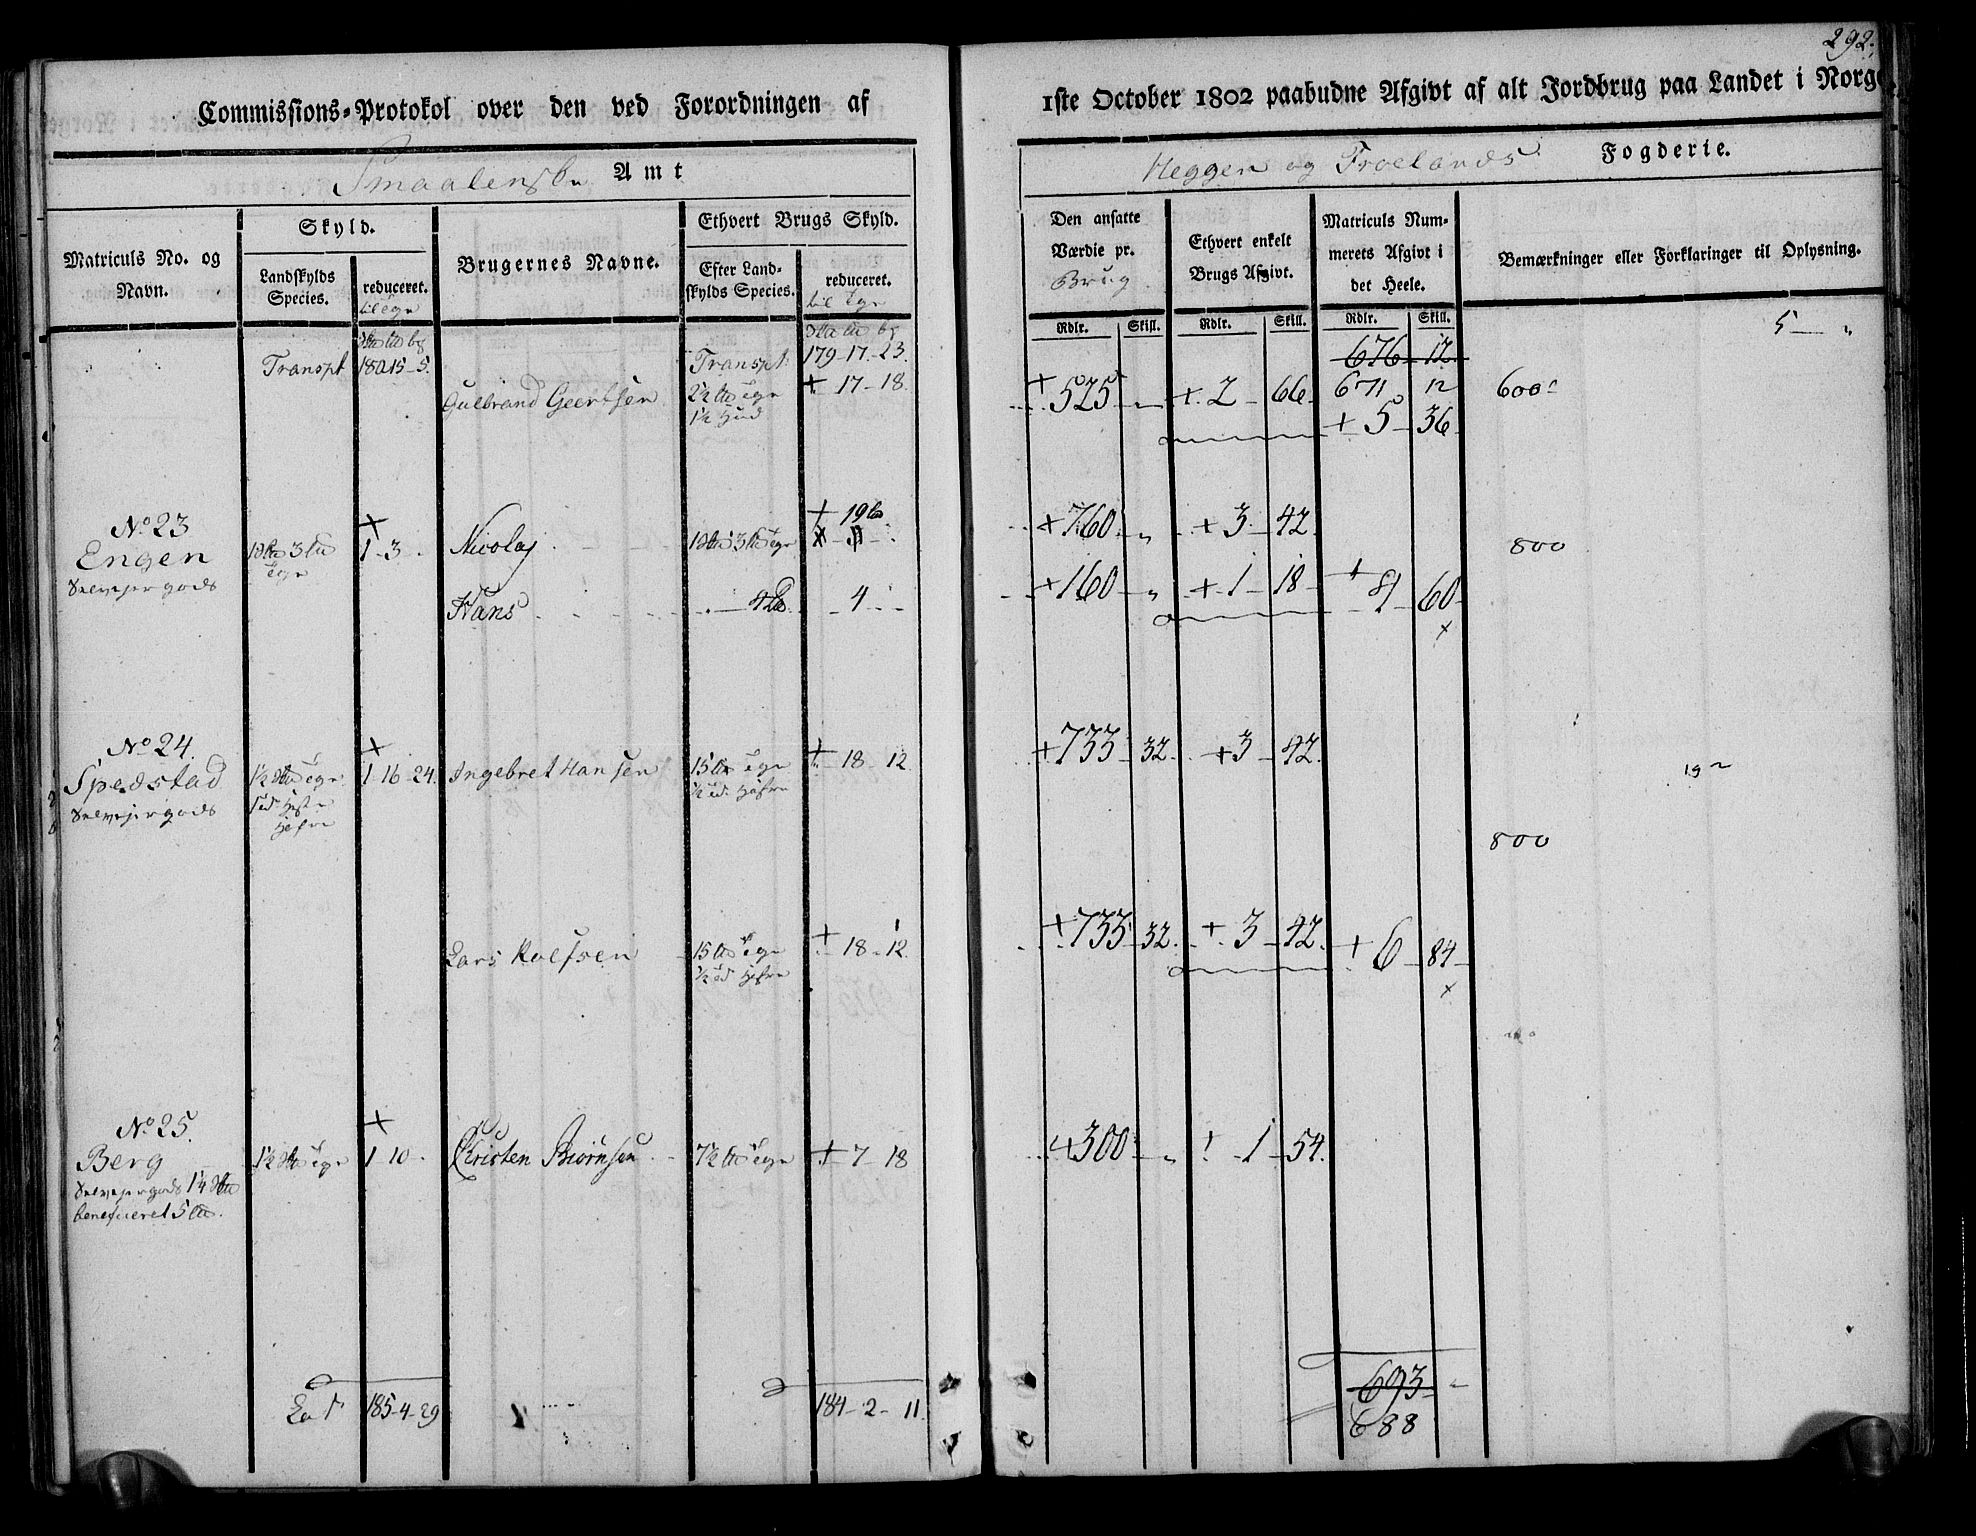 292.
Commissions-Protokol over den ved Forordningen af
1ste October 1802 paabudne Afgivt af alt Jordbrug paa Landet i Norge
Smaalenske Amt
Heggen og Froelands Fogderie.
Matriculs No. og Navn.
Skyld.
Landskylds Species.
reduceret. til Tge
Brugernes Navne.
Ethvert Brugs Skyld.
Efter Landskylds Species.
reduceret. til Tge
Den ansatte Værdie pr. Brug
Ethvert enkelt Brugs Afgivt.
Matriculs Nummerets Afgivt i det Heele.
Bemærkninger eller Forklaringer til Oplysning.
Rdlr. Skill. Rdlr. Skill. Rdlr. Skill.
5 — "
676 - 12
Transpt 180 15 - 5. Transpt: 179 - 17 - 23.
Gulbrand Geertsen 2½ Tge + 17 - 18. + 525 + 2 66 671 12 600
1½ Hud
+ 5 - 36
No 23
Engen 3 1 - 3 Nicolaj + 760 " + 3 - 42 800
Selvejergods
+ 19
Hans 4 + 160 " + 1 18 + 4 60
No 24.
Spedstad 1½ 1 - 16 - 24. Ingebret Hansen 15 + 18 - 12 + 733 - 32. + 3 - 42.
Selvejergods
800
Lars Rolfsen 15 + 18 - 12. + 733 - 32. + 3 - 42. + 6 - 84
No 25.
Berg 1½ 1 - 10 Christen Biørnsen 7½ + 7 - 18 + 300 " 1 54.
Selvejergods 1¼
beneficeret 5
Lat 185 - 4 - 29 184 - 2 - 11. 693
688